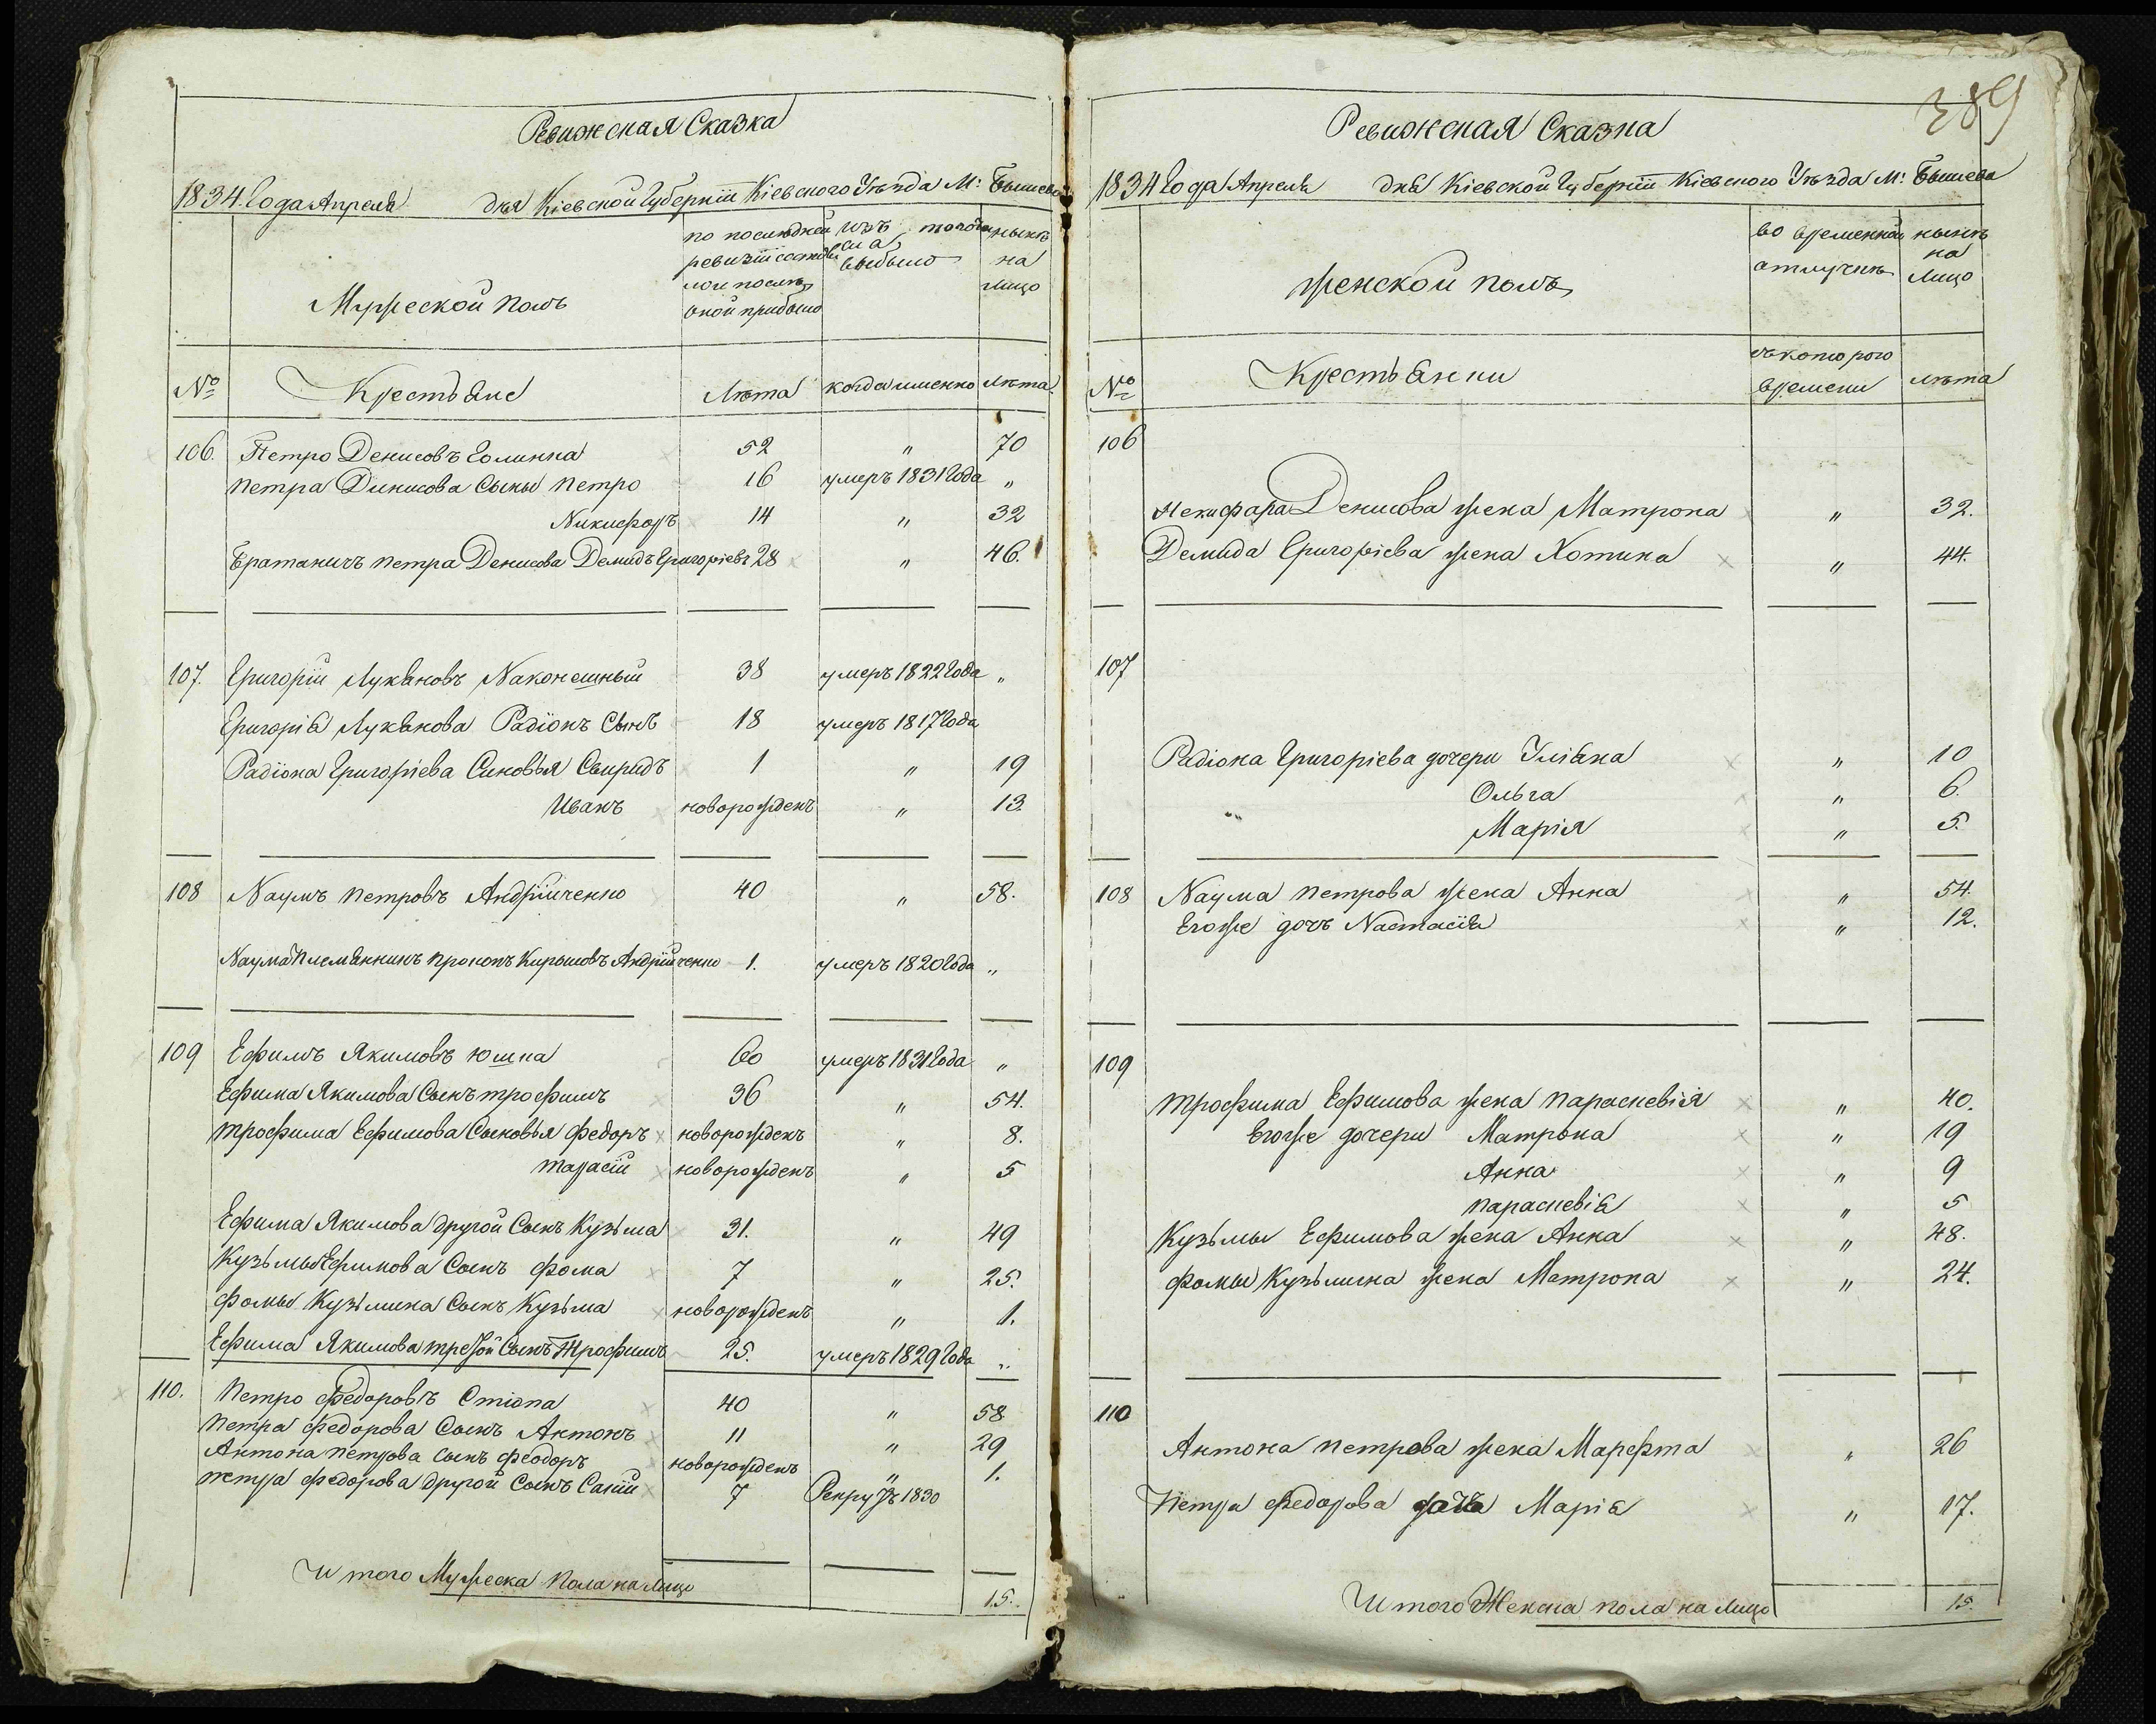 Ревижская Сказка
1834. Года Апреля дня Кіевской Губерніи Кіевского Уезда М: Бышева
Мужеской полъ
по последней ревизіи состояло и после оной прибыло
изъ того числа выбыло
ныне на лицо
№ Крестьяне Лета когда именно лета
106. Петро Денисовъ Голинка 52 " 70
Петра Динисова Сыны Петро 16 умеръ 1831 Года "
Никифоръ 14 " 32
Братаничъ Петра Денисова Демидъ Григоріевъ 28 " 46.
107. Григорій Лукяновъ Наконешный 38 умеръ 1822 Года "
Григорія Лукянова Радіонъ Сынъ 18 умеръ 1817 Года
Радіона Григоріева Синовья Свиридъ 1 " 19
Иванъ новорожденъ " 13.
108 Наумъ Петровъ Андрійченко 40 " 58.
Наума Племянникъ Прокопъ Кириловъ Андрійченко 1. умеръ 1820 Года "
109 Ефимъ Якимовъ Юшка 60 умеръ 1831 Года "
Ефима Якимова Сынъ Трофимъ 36 " 54.
Трофима Ефимова Сыновья Федоръ новорожденъ " 8.
Тарасій новорожденъ " 5
Ефима Якимова другой Сынъ Кузьма 31. " 49
Кузьмы Ефимова Сынъ Фома 7 " 25.
Фомы Кузьмина Сынъ Кузьма новорожденъ " 1.
Ефима Якимова третой Сынъ Трофимъ 25. умеръ 1829 Года "
110. Петро Федоровъ Стіопа 40 " 58
Петра Федорова Сынъ Антонъ 11 " 29
Антона Петрова Сынъ Феодоръ новорожденъ " 1.
Петра Федорова другой Сынъ 7 Рекрутъ 1830
И того Мужеска Пола на лицо 15.
389
Ревижская Сказка
1834 Года Апреля дня Кіевской Губерніи Кіевского Уезда М: Бышева
Женской полъ
во временной отлучке
ныне на лицо
№ Крестьянки съ которого времени лета
106
Некифара Денисова жена Матрона " 32.
Демида Григоріева жена Хотина " 44.
107
Радіона Григоріева дочери Уліяна " 10
Ольга " 6.
Марія " 5.
108 Наума Петрова жена Анна " 54.
Егоже дочъ Настасія " 12.
109
Трофима Ефимова жена Параскевія " 40.
Егоже дочери Матрона " 19
Анна " 9
Параскевія " 5
Кузьмы Ефимова жена Анна " 48.
Фомы Кузьмина жена Матрона " 24.
110
Антона Петрова жена Марефта " 26
Петра Федорова дочъ Марія " 17.
И того Женска пола на лицо 15.